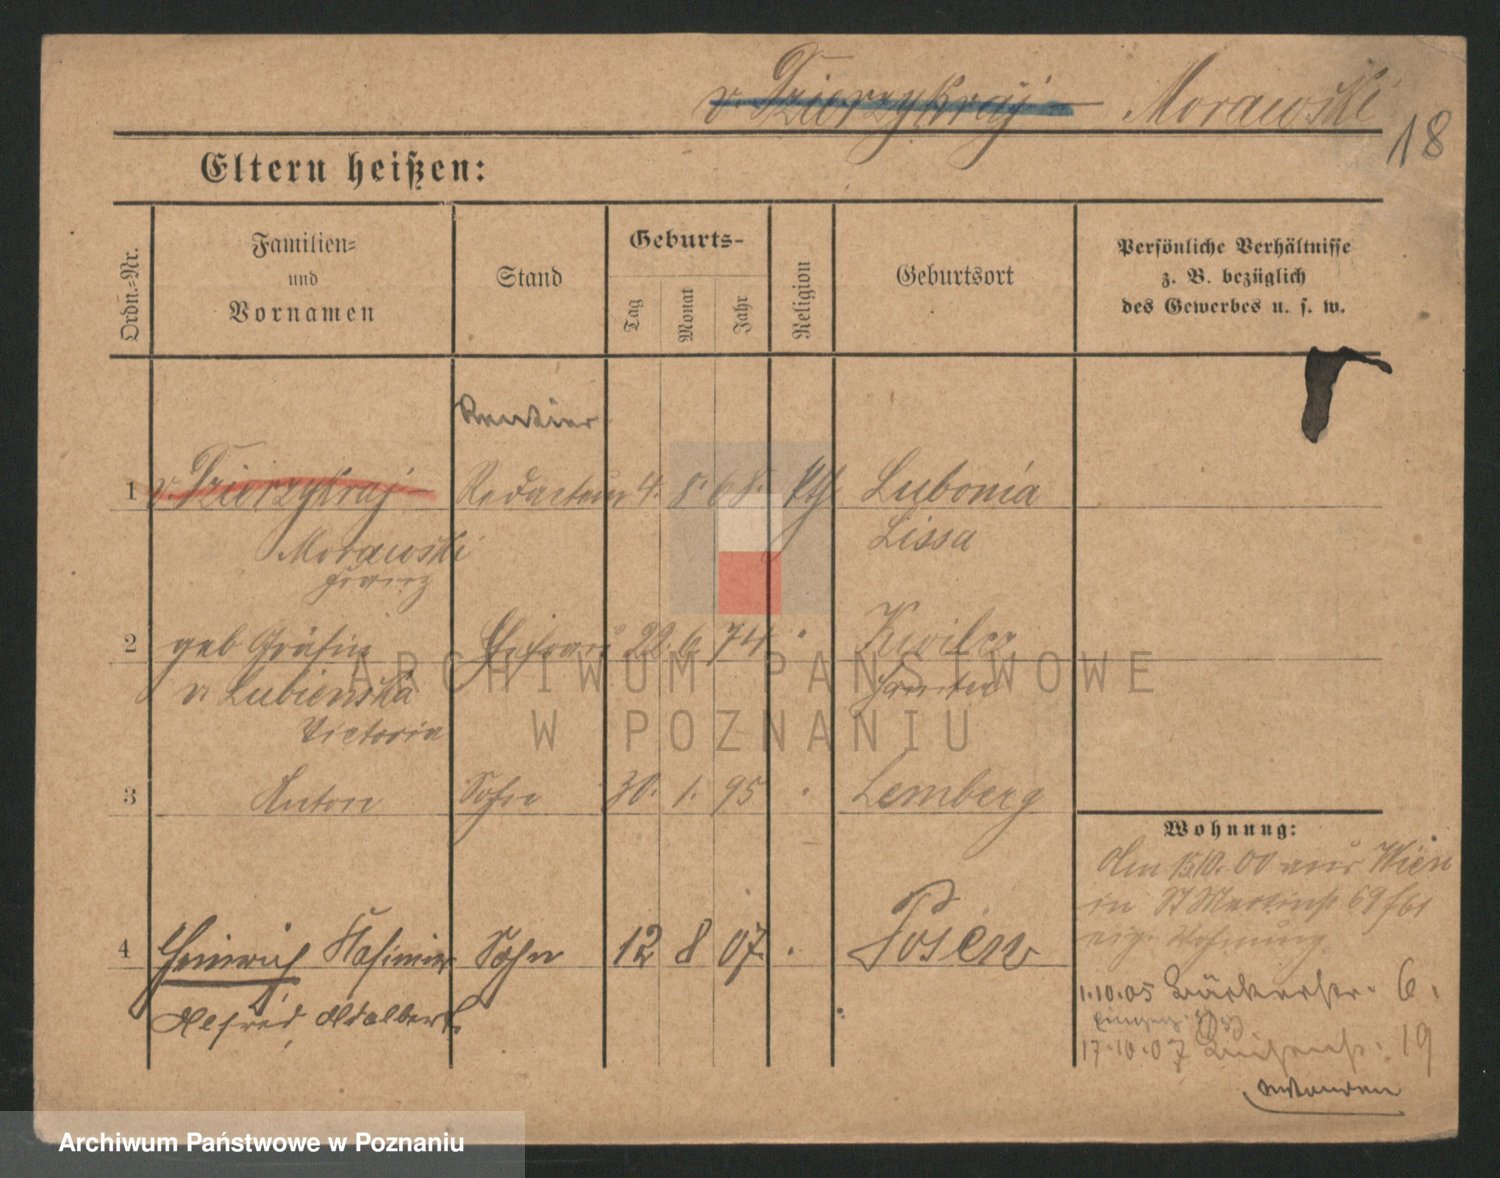 v. Dzierzykraj - Morawski
18
Eltern heißen:
Ordn.-Nr.
Familien-
und
Vornamen
Stand
Geburts-
Tag
Monat
Jahr
Religion
Geburtsort
Persönliche Verhältnisse
z. B. bezüglich
des Gewerbes u. s. w.
Rentier
1 v. Dzierzykraj- Redacteur 4. 8. 68. kth Lubonia
Morawski Lissa
Franz
2 geb Gräfin Ehefrau 22. 6. 74 Kwilcz
v. Lubienska
Victoria
3 Anton Sohn 30. 1. 95 Lemberg
Wohnung:
Am 15/10. 00 aus Wien
in St Martinstr 69
eige Wohnung
4 Heinrich Kasimier Sohn 12 8 07. Posen
Alfred, Adalbert.
1.10.05 Bäckerstr. 6.
17.10.07 Luisenstr. 19
ARCHIWUM PAŃSTWOWE
W POZNANIU
Archiwum Państwowe w Poznaniu